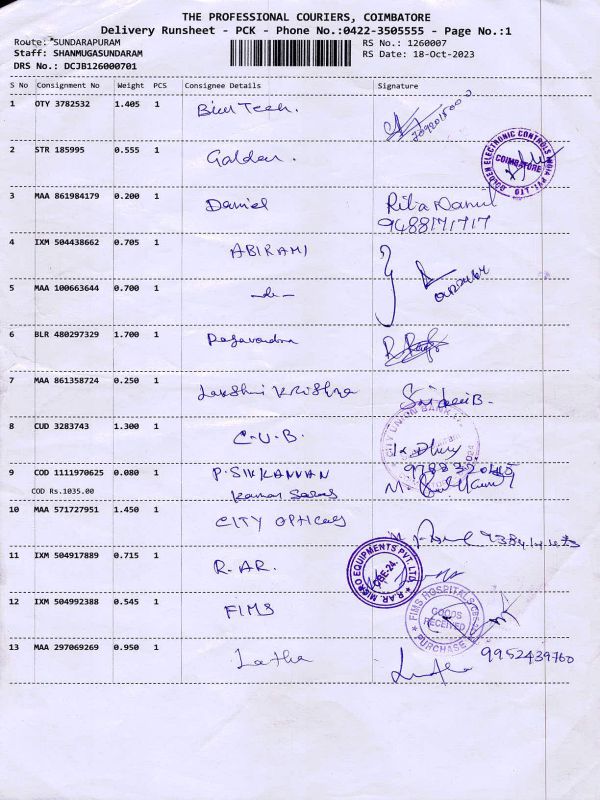 THE PROFESSIONAL COURIERS, COIMBATORE
Delivery Runsheet - PCK - Phone No.:0422-3505555 - Page No.:1
Route: SUNDARAPURAM RS No.: 1260007
Staff: SHANMUGASUNDARAM RS Date: 18-Oct-2023
DRS No.: DCJB126000701
S No Consignment No Weight PCS Consignee Details Signature
1 OTY 3782532 1.405 1
2 STR 185995 0.555 1 Golden.
GOLDEN ELECTRONIC CONTROLS INDIA PVT. LTD
COIMBATORE
3 MAA 861984179 0.200 1 Daniel
9488171717
4 IXM 504438662 0.705 1 ABIRAMI
5 MAA 100663644 0.700 1 -do-
6 BLR 480297329 1.700 1
7 MAA 861358724 0.250 1 Lakshmi Krishna
8 CUD 3283743 1.300 1 C.U.B.
CITY UNION BANK
9 COD 1111970625 0.080 1
COD Rs.1035.00
10 MAA 571727951 1.450 1 CITY OPTICALS
11 IXM 504917889 0.715 1 R.AR.
R.AR. MICRO EQUIPMENTS PVT. LTD.
CBE-24.
12 IXM 504992388 0.545 1 FIMS
FIMS HOSPITALS
GOODS
RECEIVED
PURCHASE
13 MAA 297069269 0.950 1 Latha
9952439760